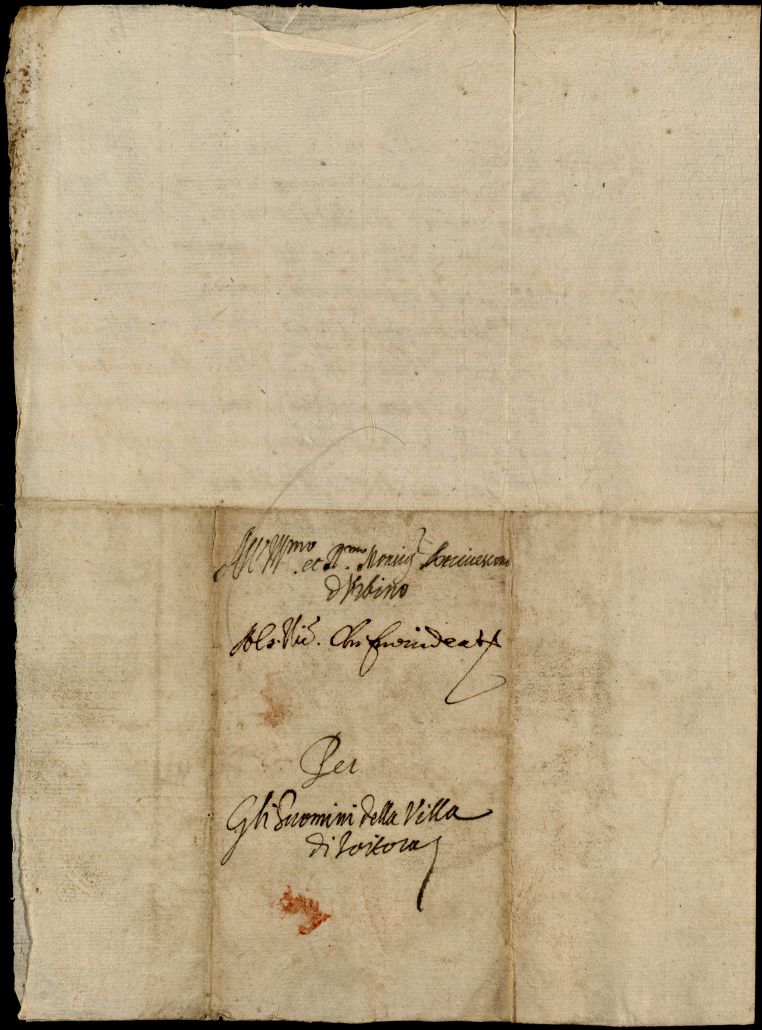 All Ill.mo et R.mo Monsig.r Arcivescovo
d'Urbino
Al s. Vic.
Per
Gli huomini della Villa
di